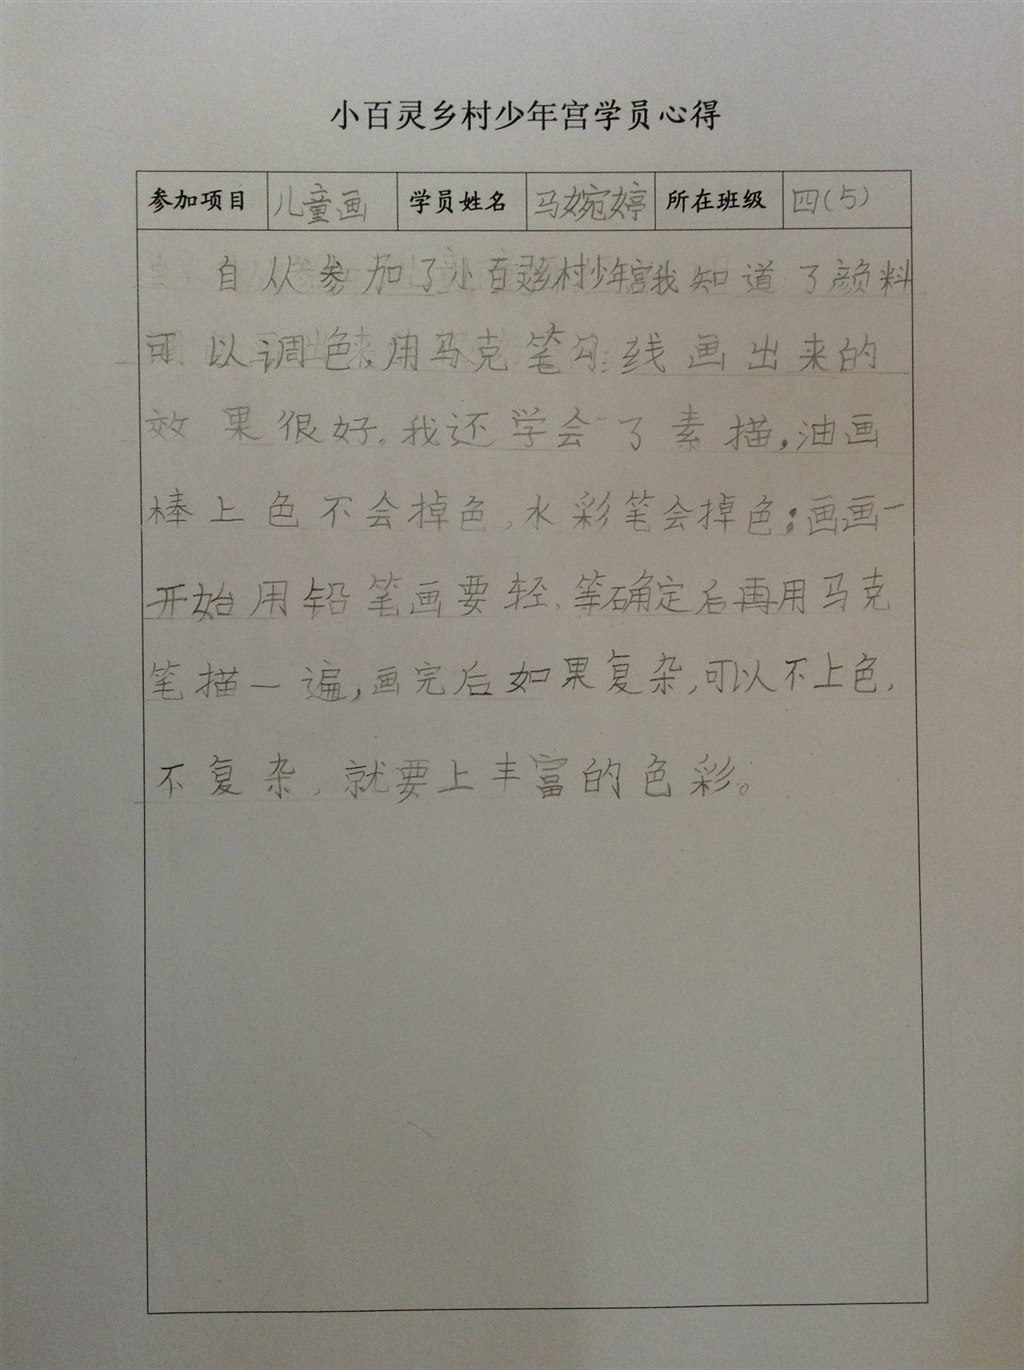 小百灵乡村少年宫学员心得
参加项目 儿童画 学员姓名 马婉婷 所在班级 四(5)
自从参加了小百灵乡村少年宫我知道了颜料
可以调色,用马克笔勾线画出来的
效果很好。我还学会了素描,油画
棒上色不会掉色,水彩笔会掉色;画画一
开始用铅笔画要轻,等确定后再用马克
笔描一遍,画完后如果复杂,可以不上色,
不复杂,就要上丰富的色彩。